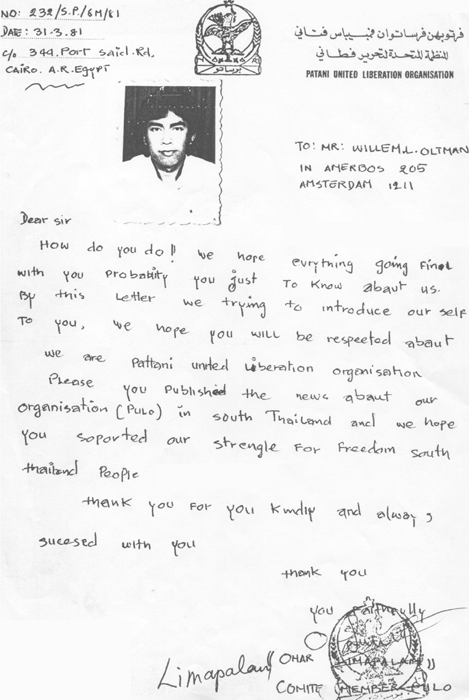 NO: 232/S.P/6M/81
DATE: 31.3.81
C/O 344. Port Said. Rd.
CAIRO. A.R. Egypt
فرتوبوهن فرساتوان
المنظمة المتحدة لتحرير فطاني
PATANI UNITED LIBERATION ORGANISATION
TO: MR: WILLEM.L. OLTMAN
IN AMERBOS 205
AMSTERDAM 1211
Dear sir
How do you do!! we hope evrything going Final
with you Probabity you just To Know about us.
By this Letter we trying to introduce our self
To you, we hope you will be respected about
we are Pattani united Liberation organisation
Please you Published the news about our
organisation (PULO) in south Thailand and we hope
you soported our strengle For Freedom south
thailand People
thank you For you Kindly and always
sucesed with you
thank you
you Faithfully
Limapalan
OMAR LIMAPALAN
COMITE MEMBER PULO